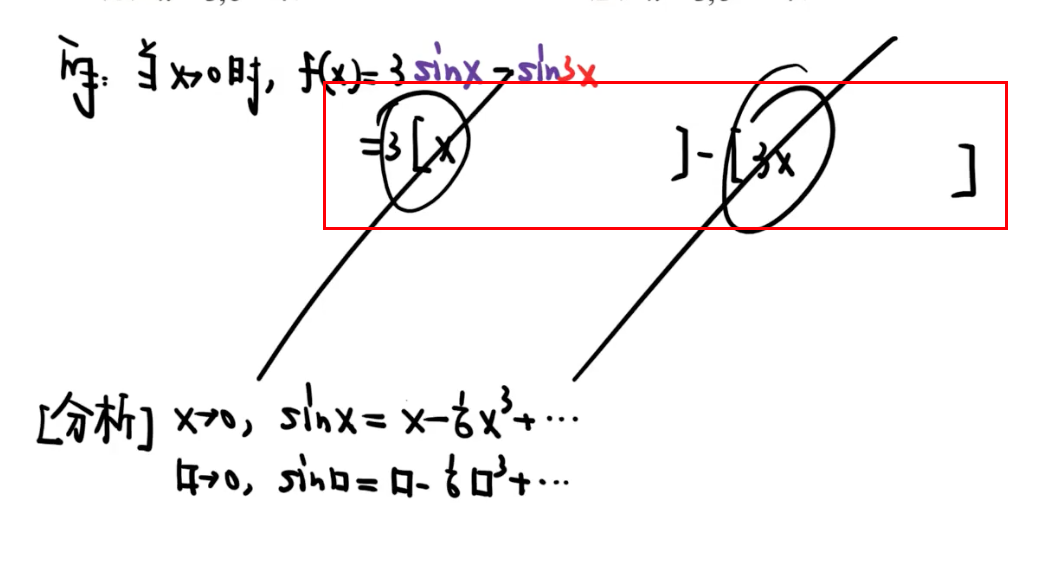 解：当x→0时，f(x)=3sinx-sin3x
=3[x ]-[3x ]
[分析] x→0，sinx=x-1/6x³+…
□→0，sin□=□-1/6□³+…